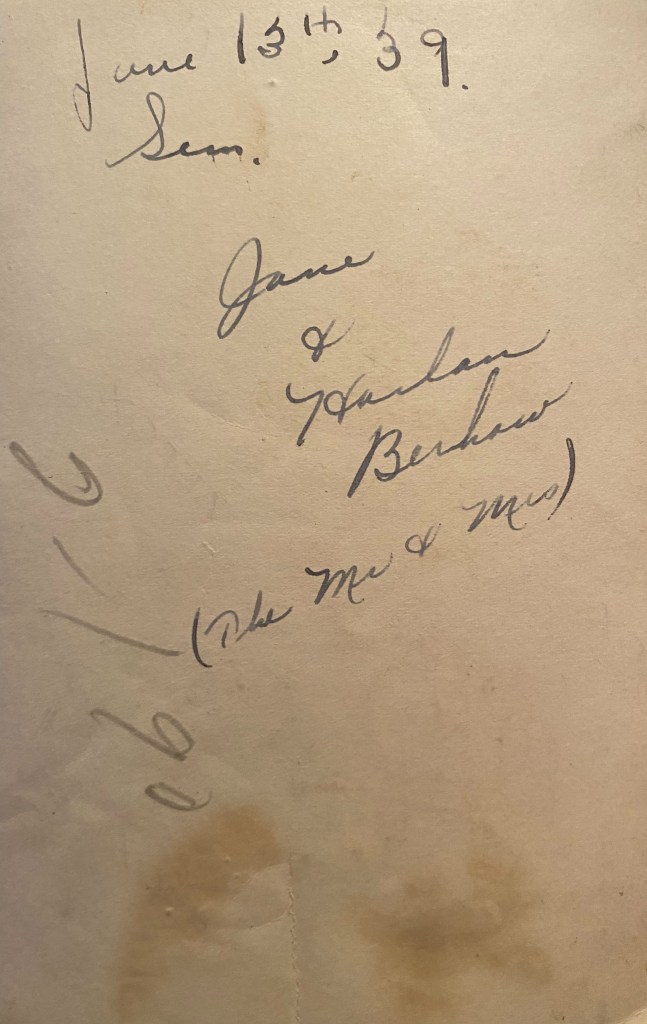 June 13th, 39.
Sem.
Jane
&
Harlan
Berhow
(The Mr & Mrs)